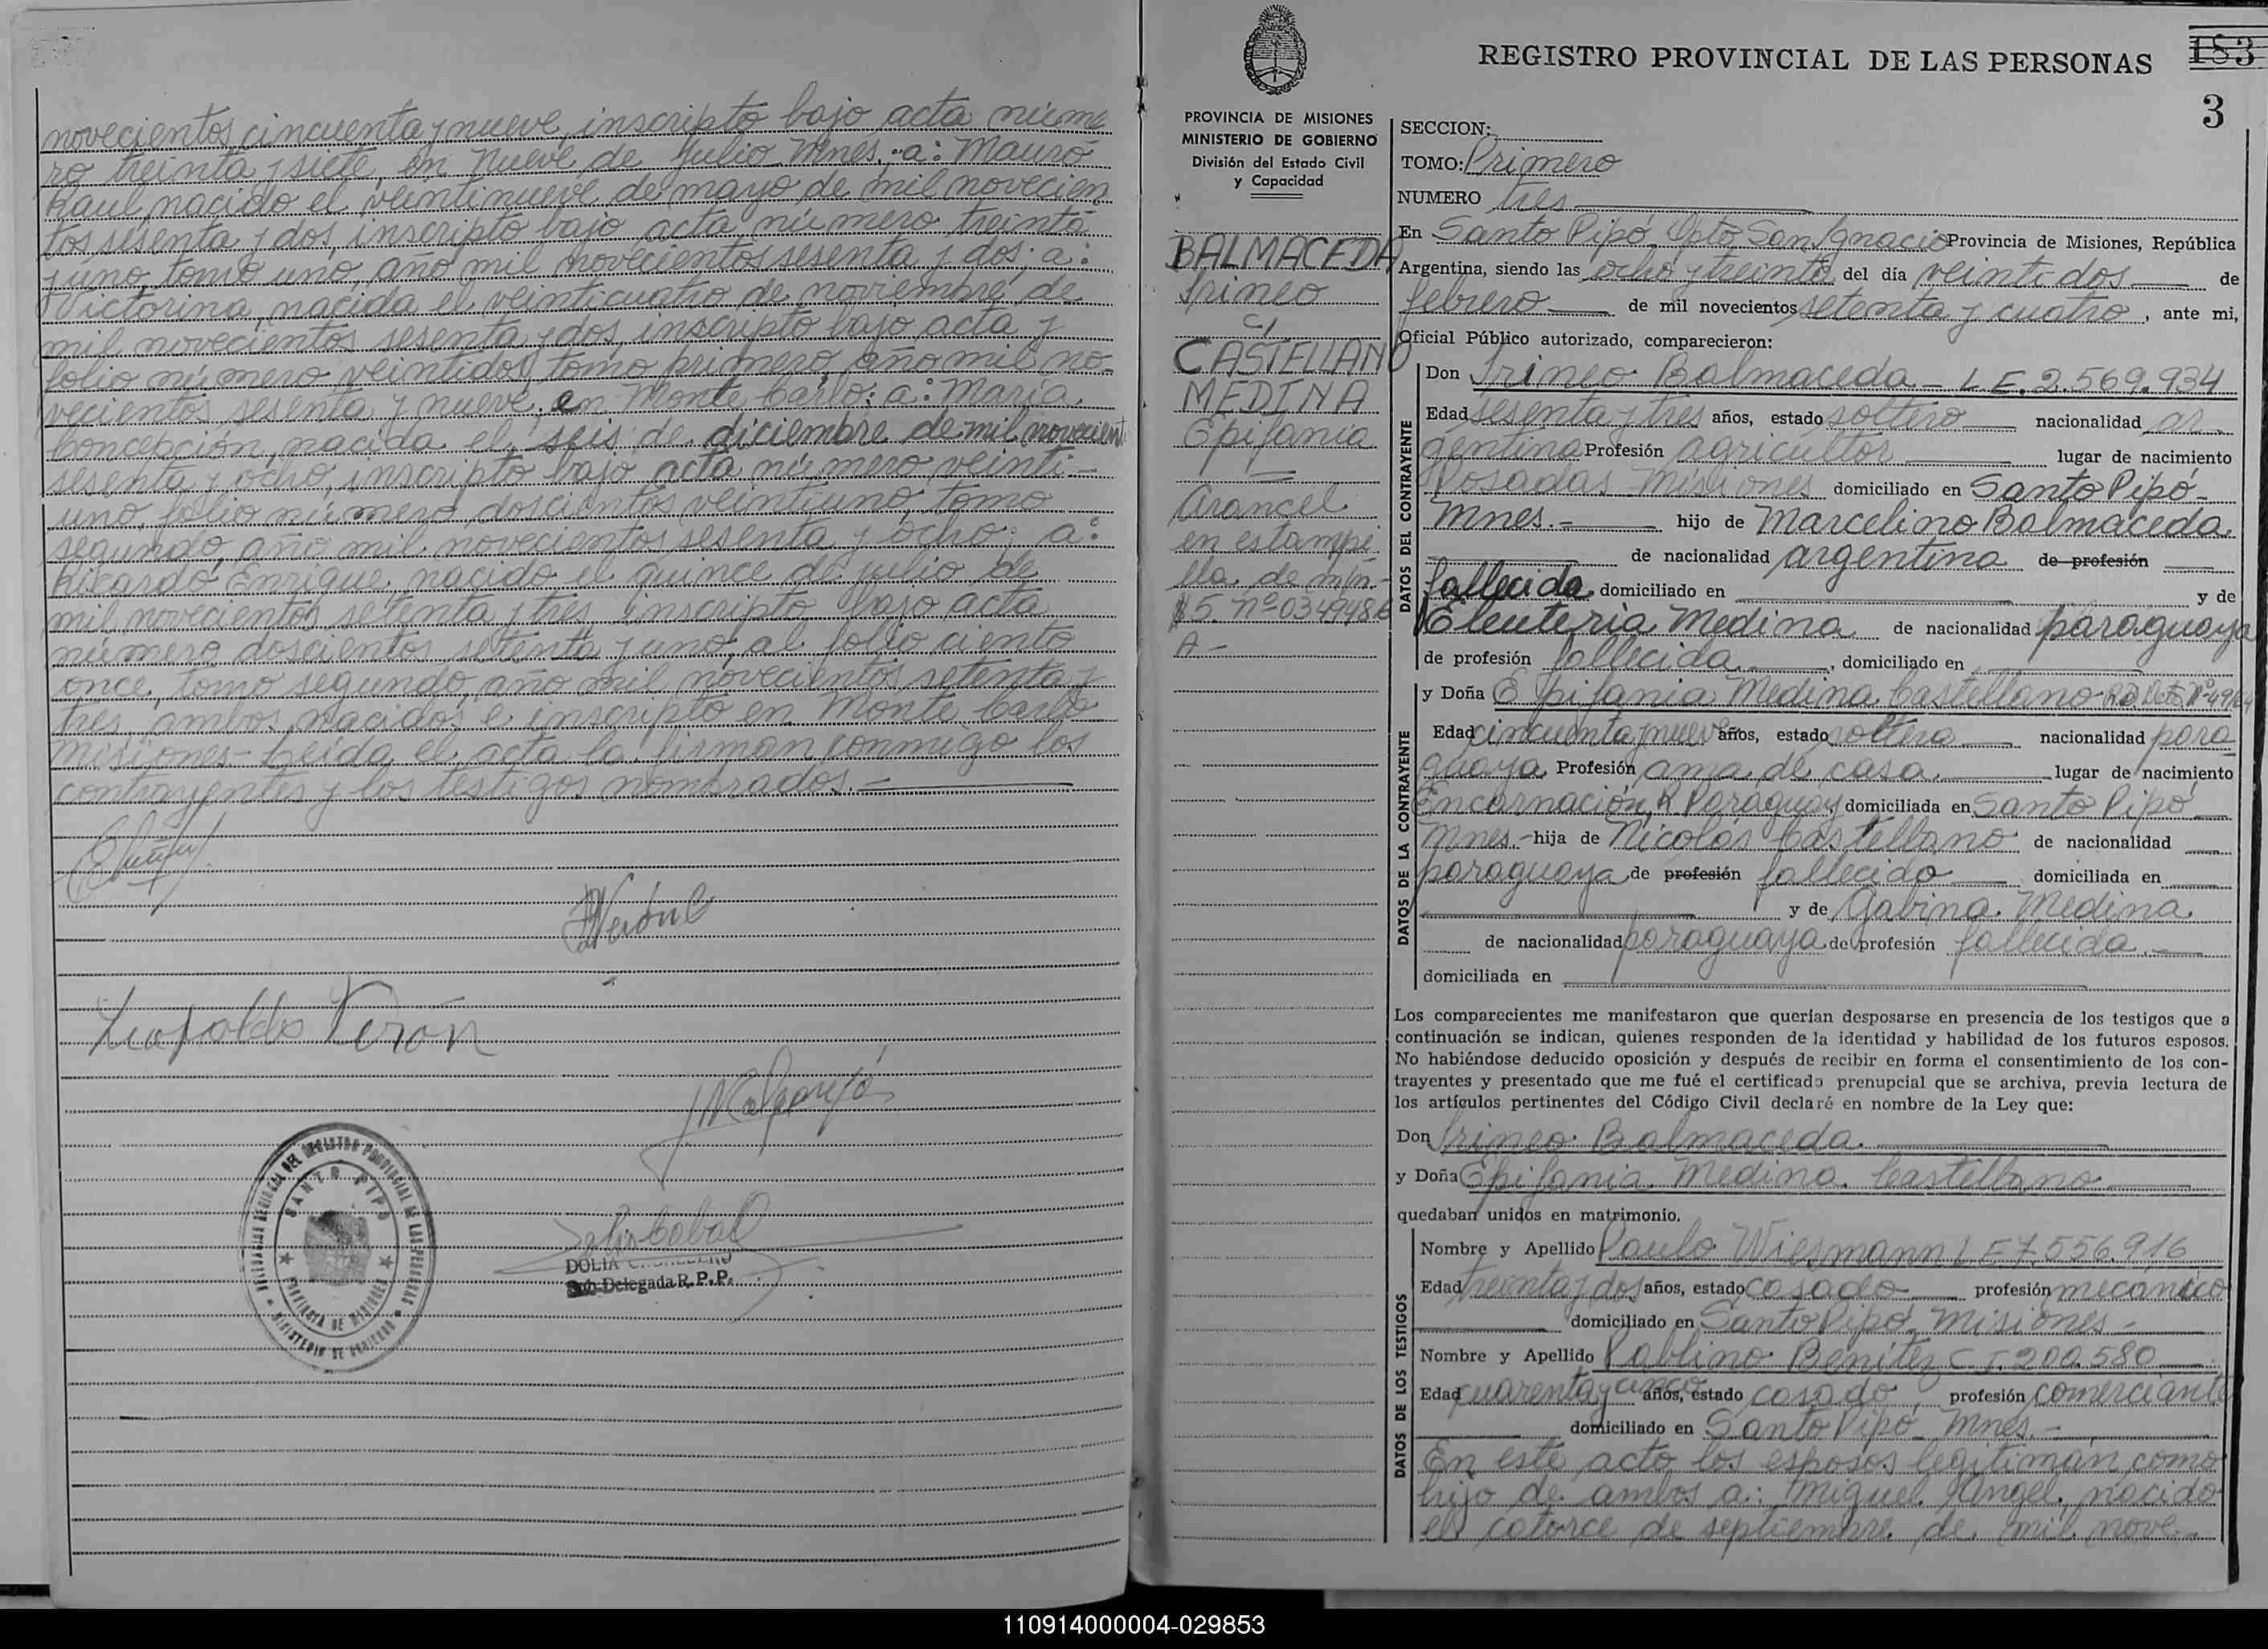 novecientos cincuenta y nueve, inscripto bajo acta núme
ro treinta y siete, en Nueve de Julio Mnes.- a: Mauro
Raul, nacido el veintinueve de mayo de mil novecien
tos sesenta y dos, inscripto bajo acta número treinta
y uno, tomo uno, año mil novecientos sesenta y dos; a:
Victorina, nacida el veinticuatro de noviembre de
mil novecientos sesenta y dos, inscripto bajo acta y
folio número veintidos, tomo primero, año mil no-
vecientos sesenta y nueve, en Monte Carlo: a: Maria
Concepción, nacida el seis de diciembre de mil novecient
sesenta y ocho, inscripto bajo acta número veinti-
uno, folio número doscientos veintiuno, tomo
segundo, año mil novecientos sesenta y ocho; a:
Ricardo Enrique, nacido el quince de julio de
mil novecientos setenta y tres, inscripto bajo acta
número doscientos setenta y uno, al folio ciento
once, tomo segundo, año mil novecientos setenta y
tres, ambos nacidos e inscripto en Monte Carlo
Misiones- Leida el acta la firman conmigo los
contrayentes y los testigos nombrados.-
Leopoldo Verón
DELEGACION REGIONAL DEL REGISTRO PROVINCIAL DE LAS PERSONAS
SANTO PIPO
PROVINCIA DE MISIONES
MINISTERIO DE GOBIERNO
Sub-Delegada R. P. P.
PROVINCIA DE MISIONES
MINISTERIO DE GOBIERNO
División del Estado Civil
y Capacidad
BALMACEDA
Irineo
c/
CASTELLANO
MEDINA
Epifania
Arancel
en estampi
lla de m/n.-
$5. nº 0349486
A-
REGISTRO PROVINCIAL DE LAS PERSONAS
183
3
SECCION:
TOMO: Primero
NUMERO tres
En Santo Pipó, Dpto San Ignacio Provincia de Misiones, República
Argentina, siendo las ocho y treinta del día veintidos de
febrero de mil novecientos setenta y cuatro, ante mi,
Oficial Público autorizado, comparecieron:
DATOS DEL CONTRAYENTE
Don Irineo Balmaceda - L E. 2.569.934
Edad sesenta y tres años, estado soltero nacionalidad ar
gentina Profesión agricultor lugar de nacimiento
Posadas Misiones domiciliado en Santo Pipó-
Mnes.- hijo de Marcelino Balmaceda
de nacionalidad argentina de profesión
fallecido domiciliado en y de
Eleuteria Medina de nacionalidad paraguaya
de profesión fallecida, domiciliado en
DATOS DE LA CONTRAYENTE
y Doña Epifania Medina Castellano
Edad cincuenta y nueve años, estado soltera nacionalidad para
guaya Profesión ama de casa. lugar de nacimiento
Encarnación, R. Paraguay domiciliada en Santo Pipó
Mnes.- hija de Nicolás Castellano de nacionalidad
paraguaya de profesión fallecido domiciliada en
y de Gabina Medina
de nacionalidad paraguaya de profesión fallecida
domiciliada en
Los comparecientes me manifestaron que querían desposarse en presencia de los testigos que a
continuación se indican, quienes responden de la identidad y habilidad de los futuros esposos.
No habiéndose deducido oposición y después de recibir en forma el consentimiento de los con-
trayentes y presentado que me fué el certificado prenupcial que se archiva, previa lectura de
los artículos pertinentes del Código Civil declaré en nombre de la Ley que:
Don Irineo Balmaceda.
y Doña Epifania Medina Castellano
quedaban unidos en matrimonio.
DATOS DE LOS TESTIGOS
Nombre y Apellido Paulo Wiesmann L E 7.556.916
Edad treinta y dos años, estado casado profesión mecánico
domiciliado en Santo Pipó, Misiones-
Nombre y Apellido Pablino Benitez C I. 200.580
Edad cuarenta y cinco años, estado casado, profesión comerciante
domiciliado en Santo Pipó- Mnes.-
En este acto los esposos legitiman como
hijo de ambos a: Miguel Angel, nacido
el catorce de septiembre de mil nove-
110914000004-029853